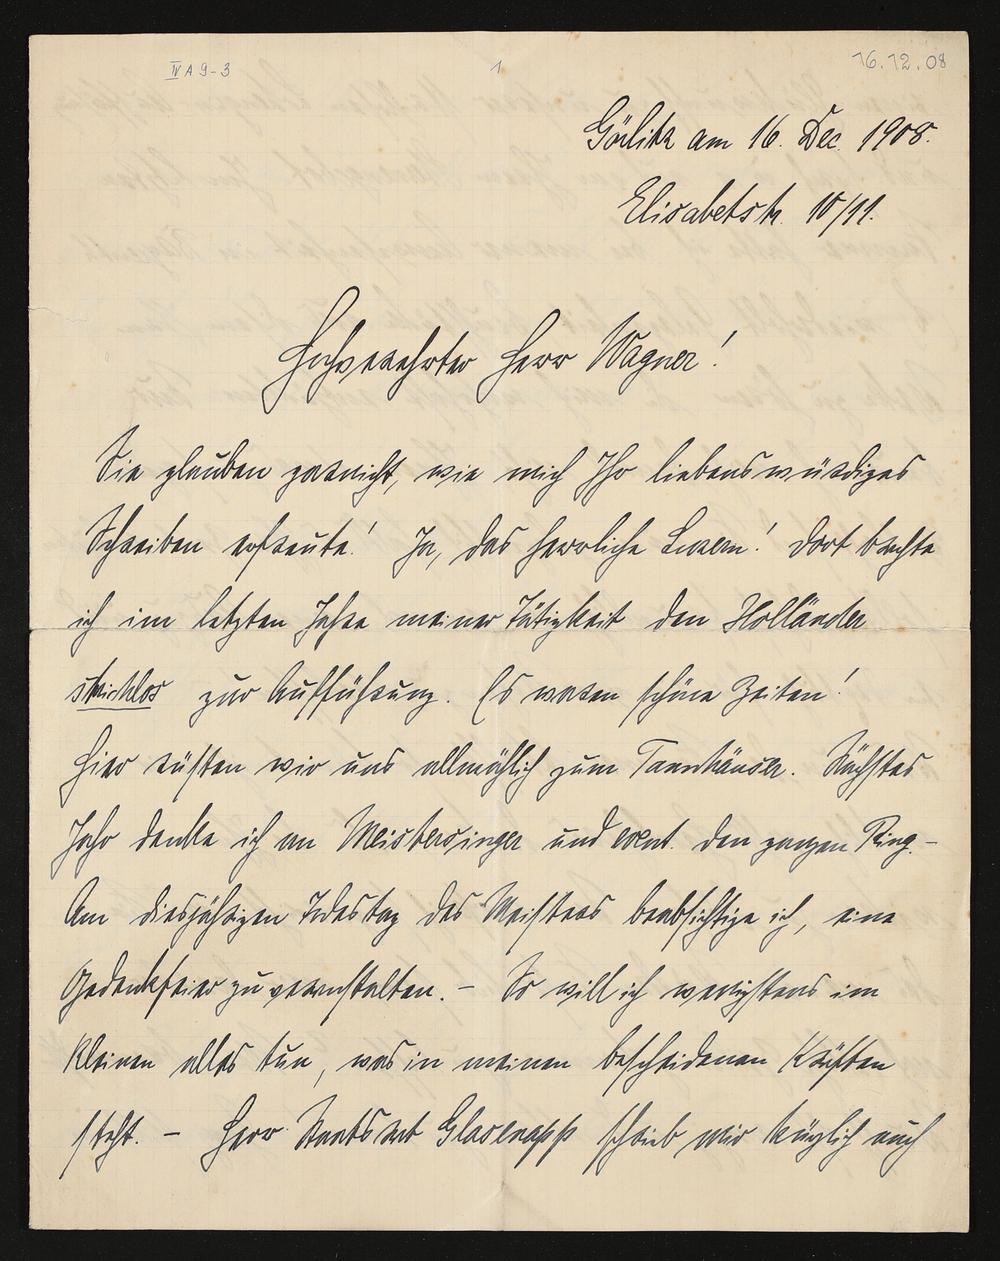 IV A 9-3 1 16.12.08
Görlitz am 16. Dec. 1908.
Elisabetstr. 10/11.
Hochverehrter Herr Wagner!
Sie glauben garnicht, wie mich Ihr liebenswürdiges
Schreiben erfreute! Ja, das herrliche Luzern! Dort brachte
ich im letzten Jahre meiner Tätigkeit den Holländer
strichlos zur Aufführung. Es waren schöne Zeiten!
Hier rüsten wir uns allmählich zum Tannhäuser. Nächstes
Jahr denke ich an Meistersinger und event. den ganzen Ring. –
Am diesjährigen Todestag des Meisters beabsichtige ich, eine
Gedenkfeier zu veranstalten. – So will ich wenigstens im
Kleinen alles tun, was in meinen bescheidenen Kräften
steht. – Herr Staatsrat Glasenapp schrieb mir kürzlich auch